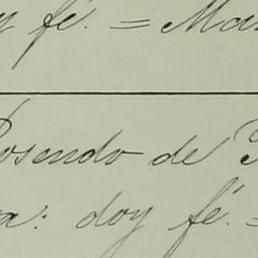 y fé. = Ma
Rosendo de
a: doy fé. =